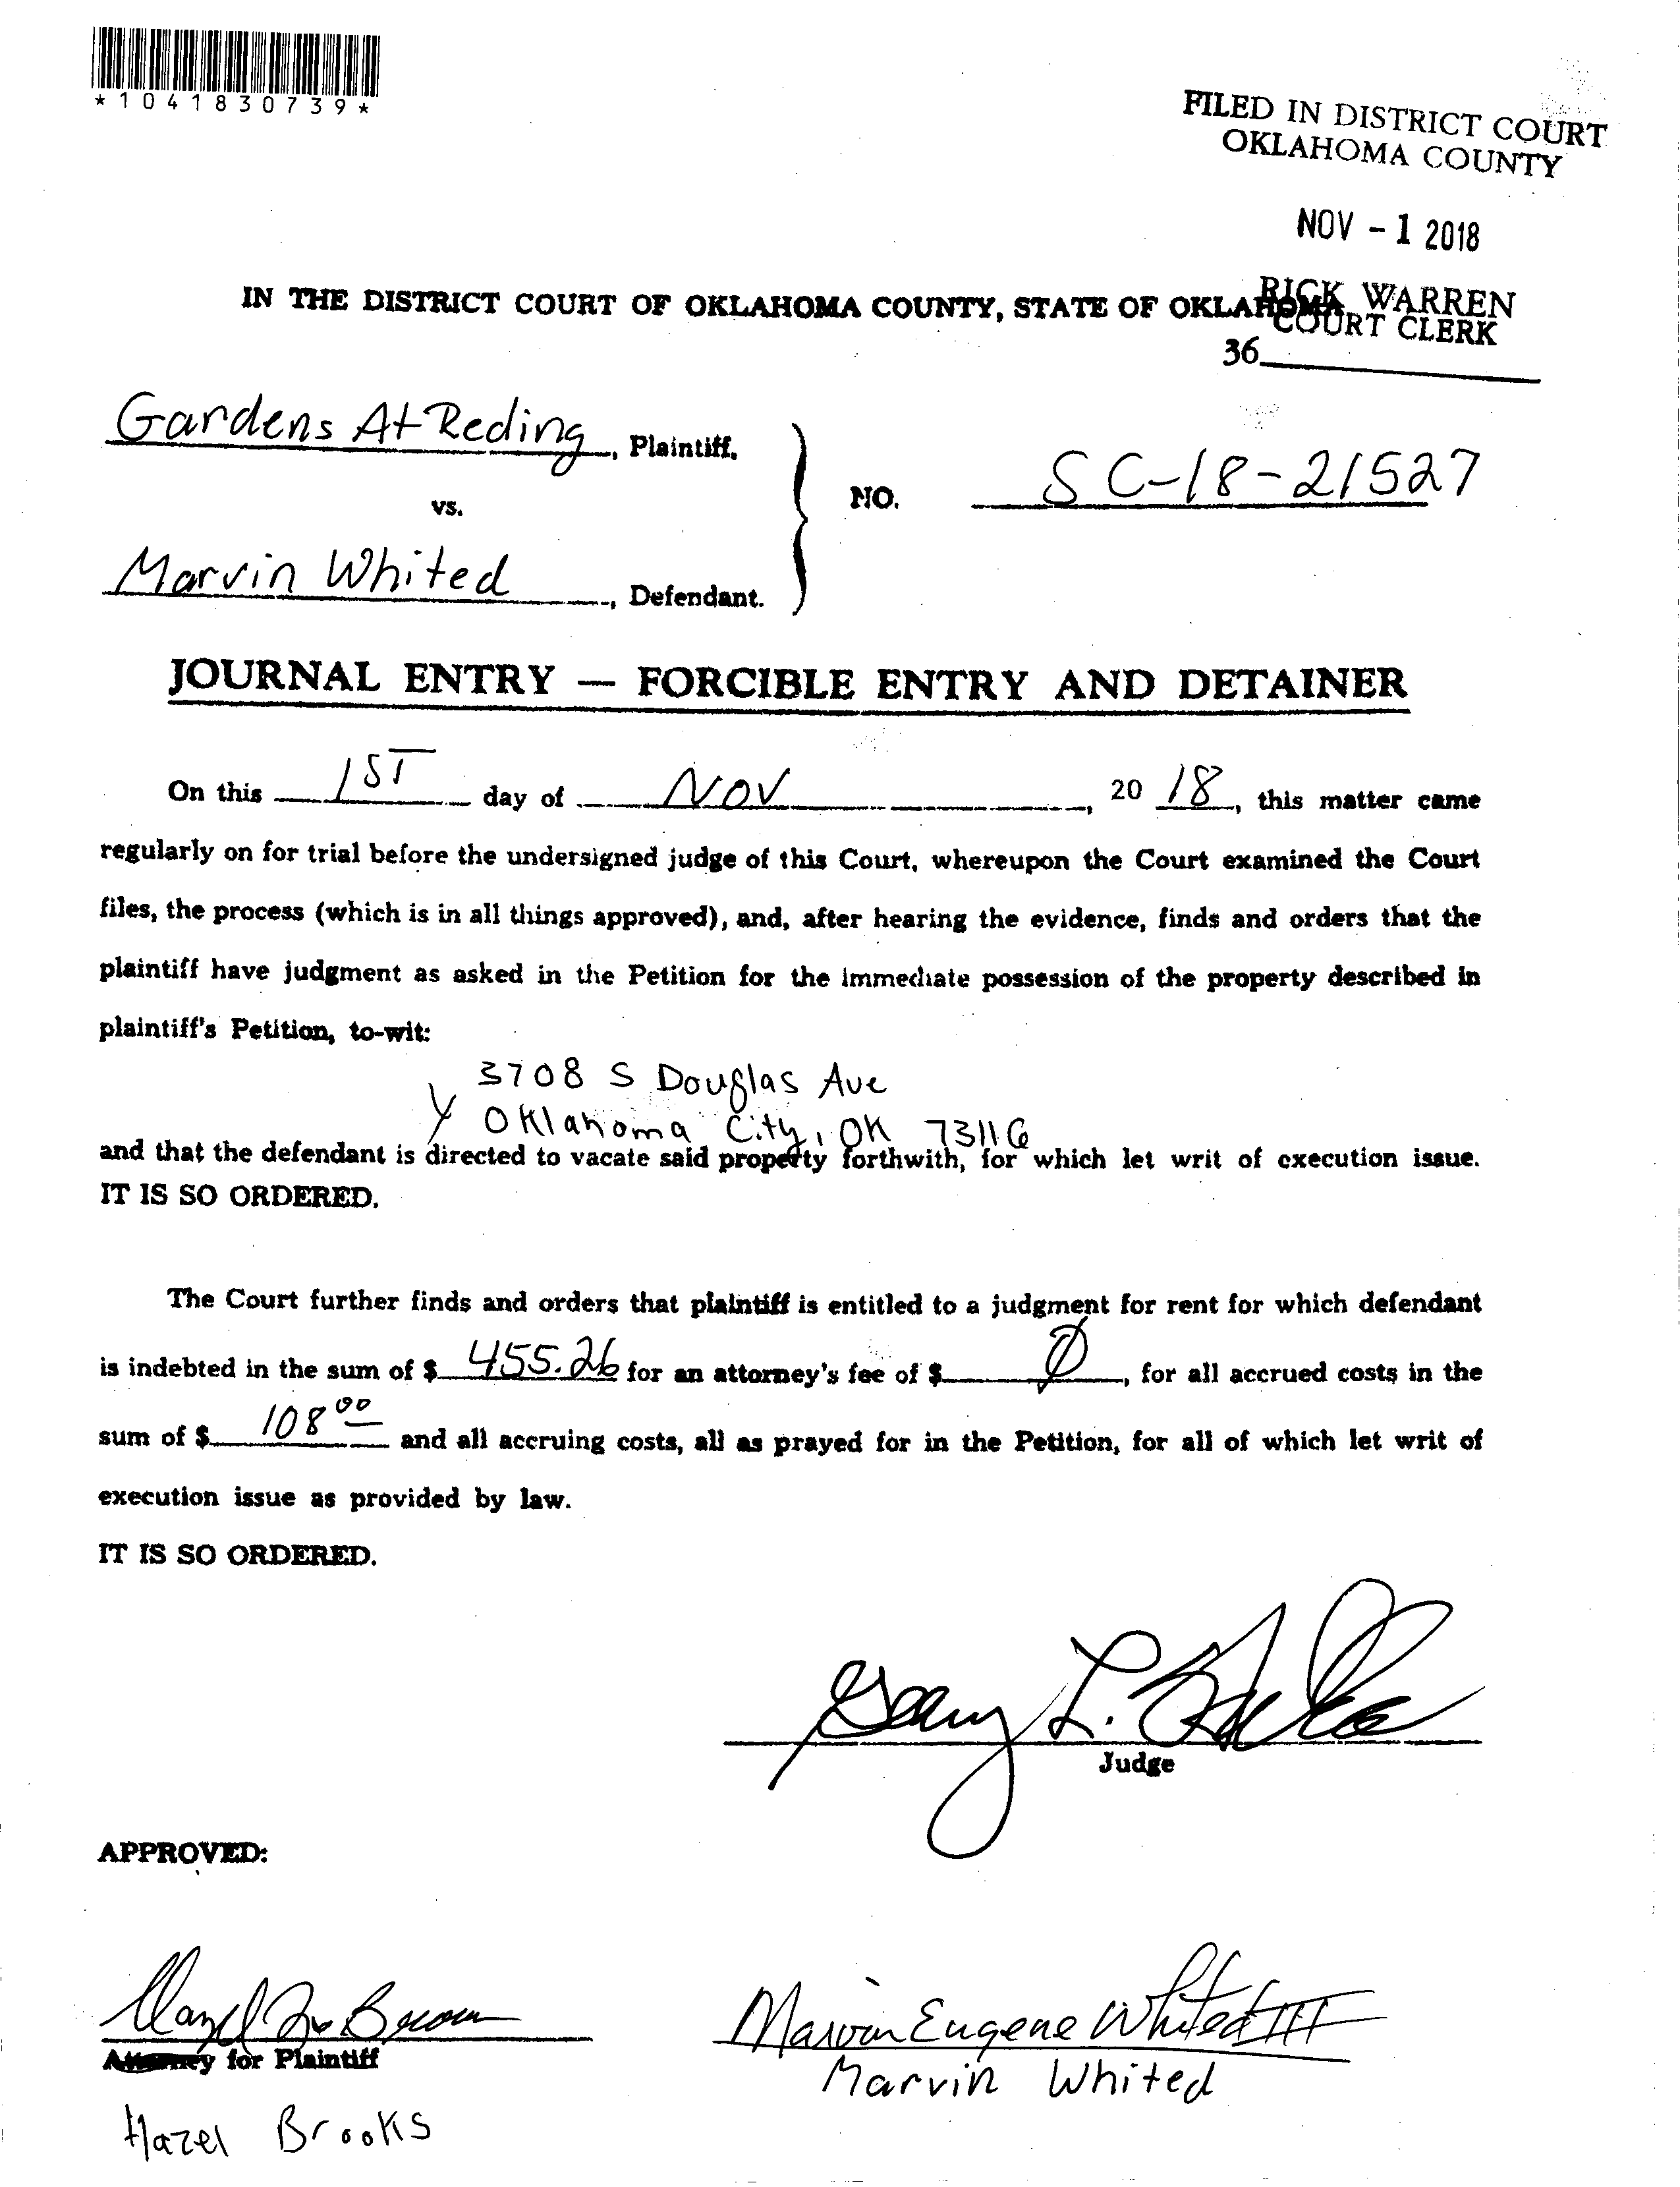 *1041830739*
FILED IN DISTRICT COURT
OKLAHOMA COUNTY
NOV - 1 2018
RICK WARREN
COURT CLERK
36
IN THE DISTRICT COURT OF OKLAHOMA COUNTY, STATE OF OKLAHOMA
Gardens At Reding, Plaintiff,
vs.
NO. SC-18-21527
Marvin Whited, Defendant.
JOURNAL ENTRY — FORCIBLE ENTRY AND DETAINER
On this 1ST day of NOV, 20 18, this matter came
regularly on for trial before the undersigned judge of this Court, whereupon the Court examined the Court
files, the process (which is in all things approved), and, after hearing the evidence, finds and orders that the
plaintiff have judgment as asked in the Petition for the immediate possession of the property described in
plaintiff's Petition, to-wit:
3708 S Douglas Ave
Oklahoma City, OK 73116
and that the defendant is directed to vacate said property forthwith, for which let writ of execution issue.
IT IS SO ORDERED.
The Court further finds and orders that plaintiff is entitled to a judgment for rent for which defendant
is indebted in the sum of $ 455.26 for an attorney's fee of $ Ø, for all accrued costs in the
sum of $ 108 00 and all accruing costs, all as prayed for in the Petition, for all of which let writ of
execution issue as provided by law.
IT IS SO ORDERED.
Judge
APPROVED:
Marvin Eugene Whited III
Attorney for Plaintiff
Marvin Whited
Hazel Brooks